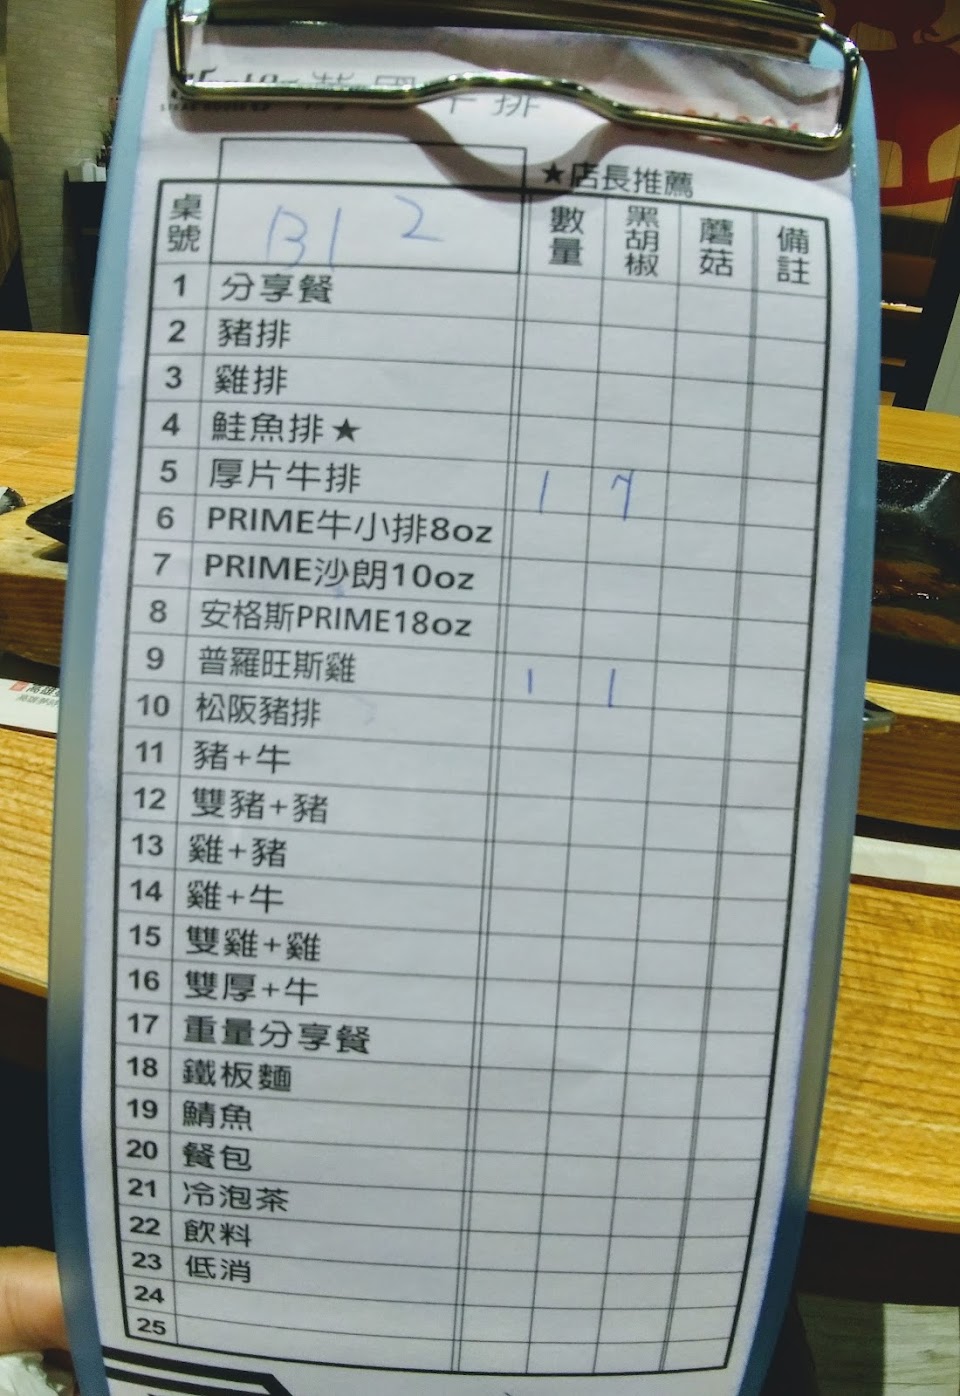 牛排
★店長推薦
桌號 B1 2 數量 黑胡椒 蘑菇 備註
1 分享餐
2 豬排
3 雞排
4 鮭魚排★
5 厚片牛排 1
6 PRIME牛小排8oz
7 PRIME沙朗10oz
8 安格斯PRIME18oz
9 普羅旺斯雞 1 1
10 松阪豬排
11 豬+牛
12 雙豬+豬
13 雞+豬
14 雞+牛
15 雙雞+雞
16 雙厚+牛
17 重量分享餐
18 鐵板麵
19 鯖魚
20 餐包
21 冷泡茶
22 飲料
23 低消
24
25